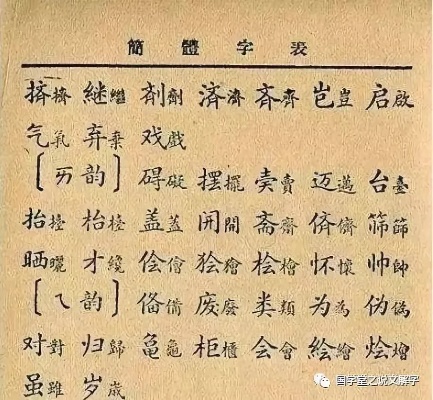 簡體字表
挤擠 継繼 剤劑 済濟 斉齊 岂豈 启啟
气氣 弃棄 戏戲
[ㄞ韵] 碍礙 摆擺 卖賣 迈邁 台臺
抬擡 枱檯 盖蓋 开開 斋齋 侪儕 筛篩
晒曬 才纔 侩儈 狯獪 桧檜 怀懷 帅帥
[ㄟ韵] 俻備 废廢 类類 为為 伪偽
对對 归歸 亀龜 柜櫃 会會 絵繪 烩燴
虽雖 岁歲
国学堂之说文解字